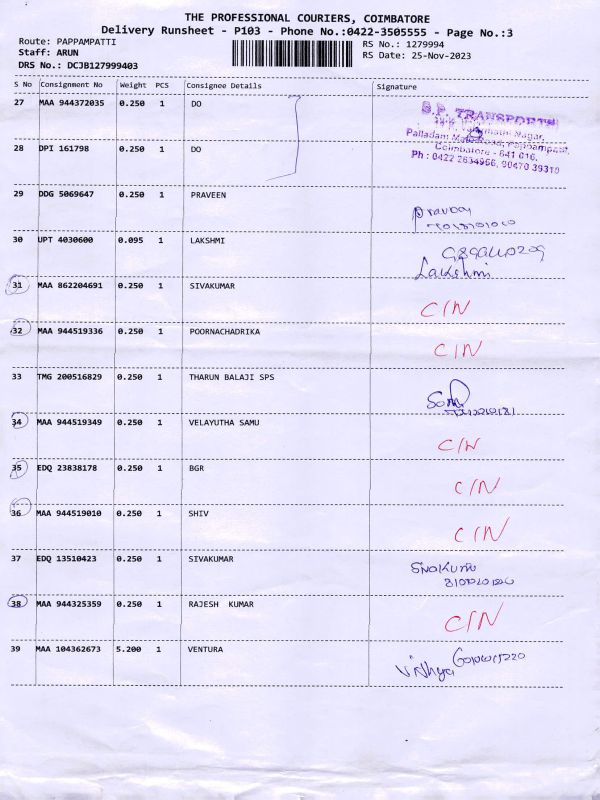 THE PROFESSIONAL COURIERS, COIMBATORE
Delivery Runsheet - P103 - Phone No.:0422-3505555 - Page No.:3
Route: PAPPAMPATTI
Staff: ARUN
DRS No.: DCJB127999403
RS No.: 1279994
RS Date: 25-Nov-2023
S No Consignment No Weight PCS Consignee Details Signature
27 MAA 944372035 0.250 1 DO
S.P. TRANSPORTS
Nagar,
Palladam
Coimbatore - 641 016,
28 DPI 161798 0.250 1 DO
Ph : 0422 2634956, 90470 39310
29 DDG 5069647 0.250 1 PRAVEEN
30 UPT 4030600 0.095 1 LAKSHMI
Lakshmi
31 MAA 862204691 0.250 1 SIVAKUMAR C/N
32 MAA 944519336 0.250 1 POORNACHADRIKA C/N
33 TMG 200516829 0.250 1 THARUN BALAJI SPS
34 MAA 944519349 0.250 1 VELAYUTHA SAMU C/N
35 EDQ 23838178 0.250 1 BGR C/N
36 MAA 944519010 0.250 1 SHIV C/N
37 EDQ 13510423 0.250 1 SIVAKUMAR
38 MAA 944325359 0.250 1 RAJESH KUMAR C/N
39 MAA 104362673 5.200 1 VENTURA
Vidhya